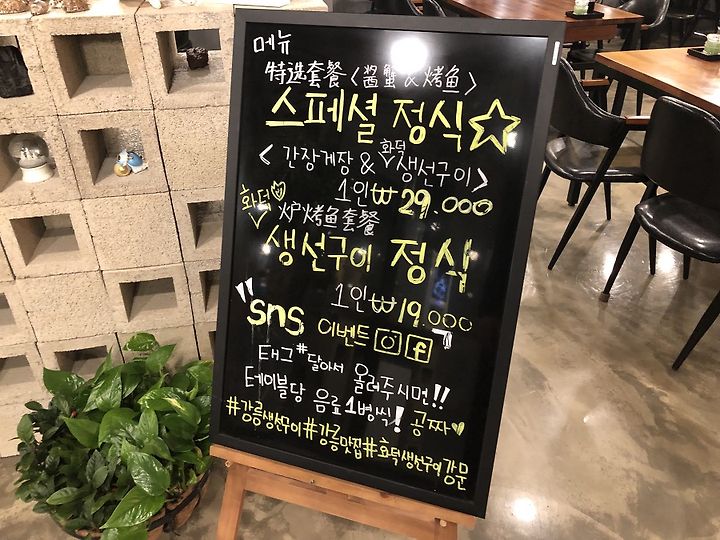 메뉴
特选套餐<酱蟹&烤鱼>
스페셜 정식☆
<간장게장& 화덕 생선구이>
1인₩29.000
화덕♡
炉烤鱼套餐
생선구이 정식
1인₩19.000
"sns 이벤트 f"
태그#달아서 올려주시면!!
테이블당 음료1병씩! 공짜♡
#강릉생선구이#강릉맛집#화덕생선구이강문